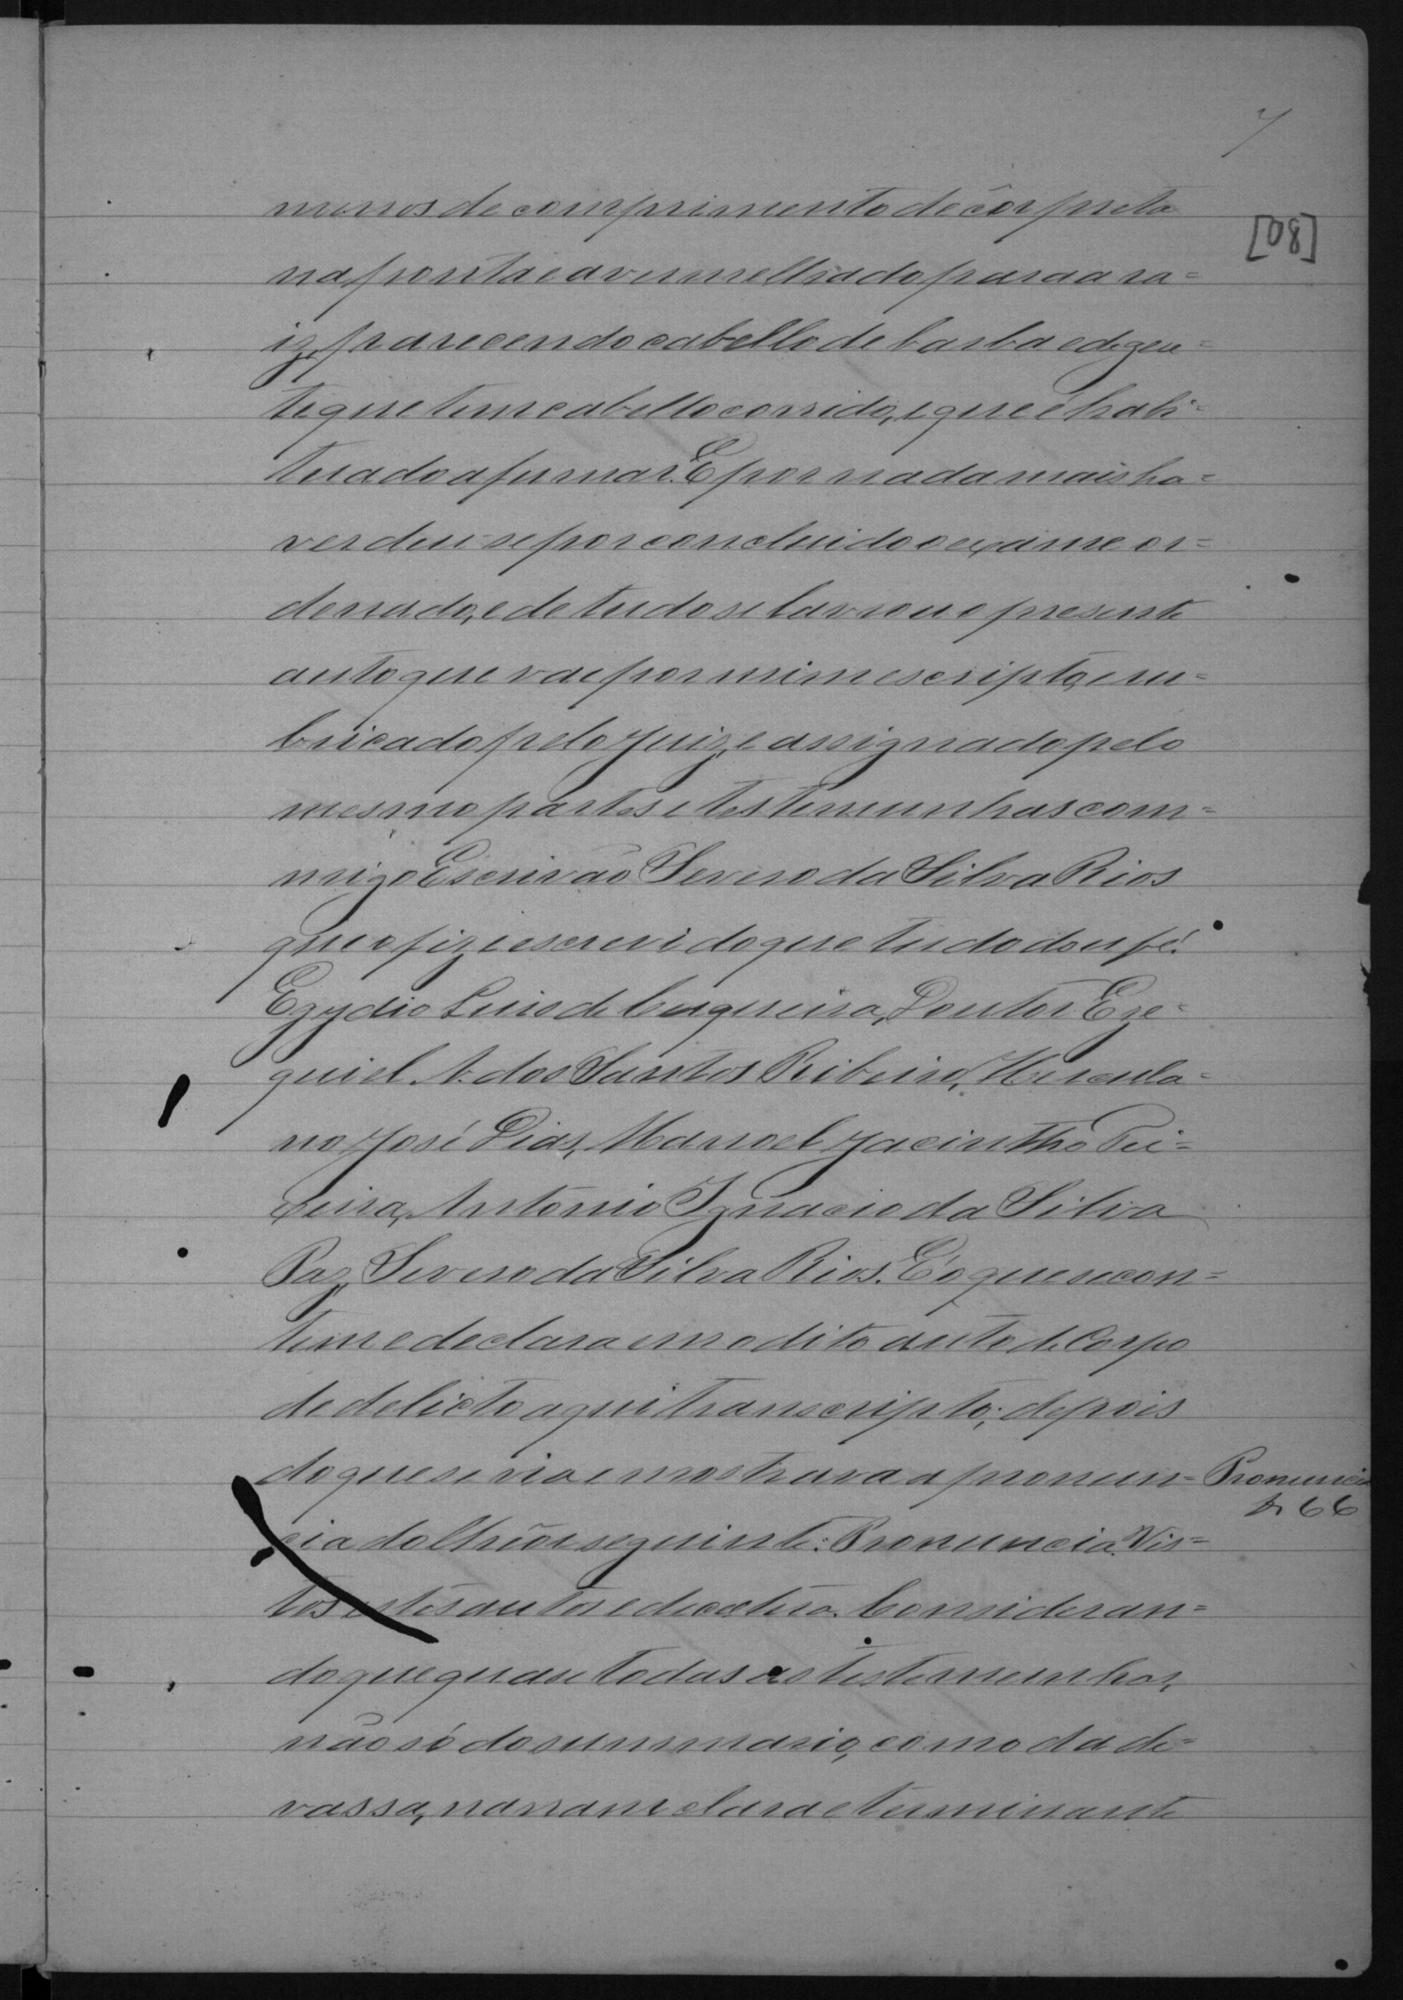 7
[08]
menos de comprimento de côr preta
na ponta e avermelhado para a ra=
iz, parecendo cabello de barba e de gen=
te que tem cabello corrido, e que é habi=
tuado a fumar. E por nada mais ha=
ver deu-se por concluido o exame or=
denado, e de tudo se lavrou o presente
auto que vae por mim escripto, e ru=
bricado pelo Juiz, e assignado pelo
mesmo partes e testemunhas com=
migo Escrivão Severo da Silva Rios
que o fiz e escrevi do que tudo dou fé.
Egydio Luis de Cerqueira, Doutor Eze=
quiel A. dos Santos Ribeiro, Hercula=
no José Dias, Manoel Jacintho Tei=
xeira, Antonio Ignacio da Silva
Paz, Severo da Silva Rios. É o que se con=
tem e declara em o dito auto de Corpo
de delicto aqui transcripto; depois
do que se via e mostrava a pronun=
Pronuncia
fs 66
cia do theôr seguinte: Pronuncia. Vis=
tos estes autos e decætera. Consideran=
do que quase todas as testemunhas,
não só do summario, como da de=
vassa, narram clara e terminante